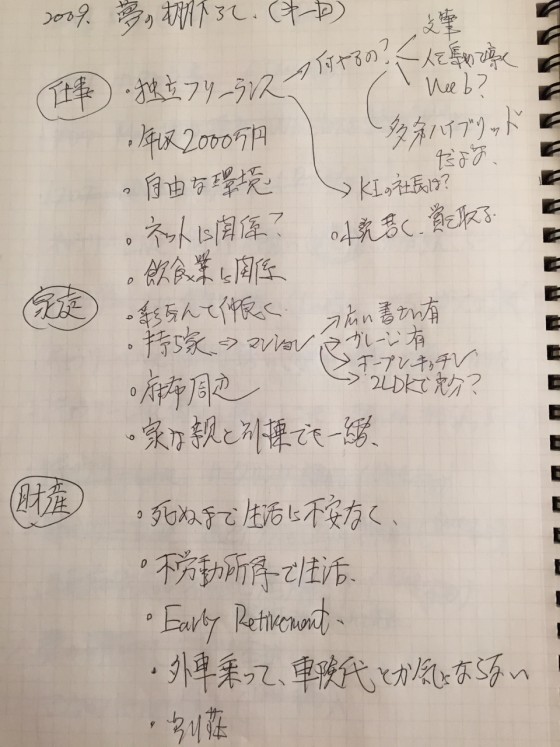 2009. 夢の棚下ろし.(第一回)
仕事
・独立フリーランス → 何やるの?
文筆
人を集めて導く
Web?
多分ハイブリッド
だよな.
→ KIの社長は?
・年収2000万円
・自由な環境
・小説書く、賞を取る
・ネットに関係?
・飲食業に関係
家庭
と仲良く
・持ち家 ⇒ マンション
広い書さい有
ガレージ有
オープンキッチン
2LDKで充分?
・麻布周辺
・家は親と別棟でも一緒、
財産
・死ぬまで生活に不安なく、
・不労動所得で生活、
・Early Retirement、
・外車乗って、車険代とか気にならない
・別荘